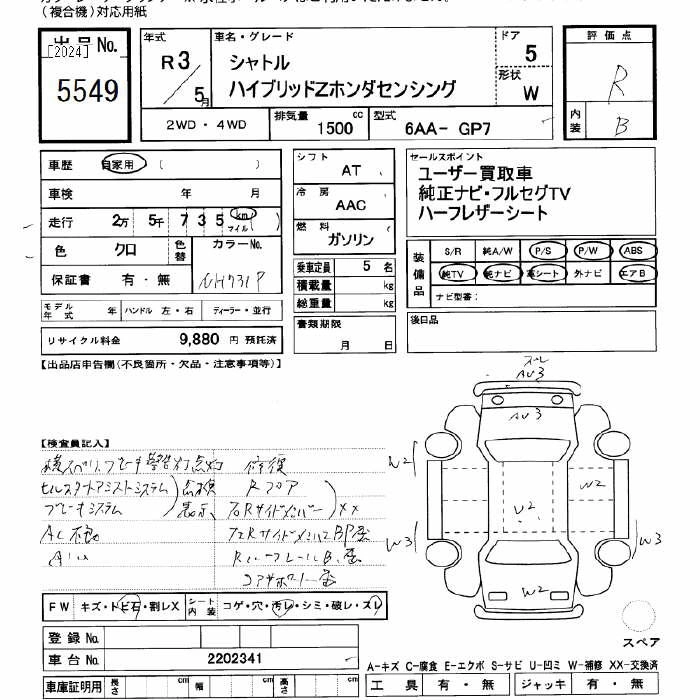 (複合機)対応用紙
出品No.
[2024]
5549
年式
R3/5月
車名・グレード
シャトル
ハイブリッドZホンダセンシング
ドア
5
形状
W
評価点
R
内装
B
2WD・4WD
排気量
1500 cc
型式
6AA- GP7
車歴 自家用 ( )
車検 年 月
走行 2万 5千 7 3 5 km マイル ( )
色 クロ
色替
カラーNo.
NH731P
保証書 有・無
モデル年式 年
ハンドル 左・右
ディーラー・並行
リサイクル料金 9,880 円 預託済
シフト
AT
冷房
AAC
燃料
ガソリン
乗車定員 5 名
積載量 kg
総重量 kg
書類期限
月 日
セールスポイント
ユーザー買取車
純正ナビ・フルセグTV
ハーフレザーシート
装備品
S/R 純A/W P/S P/W ABS
純TV 純ナビ 革シート 外ナビ エアB
ナビ型番:
後日品
【出品店申告欄(不良箇所・欠品・注意事項等)】
【検査員記入】
ブレーキ警告灯点灯 修復
ヒルスタートアシストシステム 点検 Rフロア
ブレーキシステム 表示 右Rサイドメンバー XX
AC不良
AU3
AU3
W2
W2
U2
W3
W3
W2
FW キズ・トビ石・割レX
シート内装 コゲ・穴・汚レ・シミ・破レ・ズレ
登録No.
車台No. 2202341
車庫証明用 長さ cm 幅 cm 高さ cm
スペア
A-キズ C-腐食 E-エクボ S-サビ U-凹ミ W-補修 XX-交換済
工具 有・無 ジャッキ 有・無